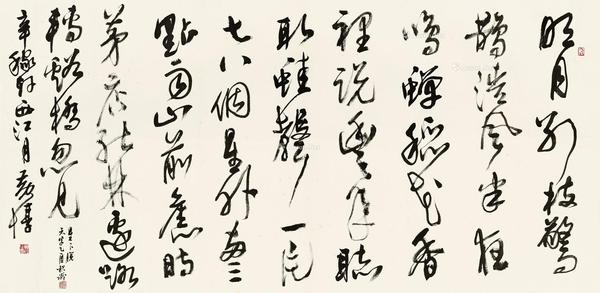 明月別枝驚
鵲清風半夜
鳴蟬稻花香
裡說豐年聽
取蛙聲一片
七八個星外兩三
點雨山前舊時
茅店社林邊路
轉谿橋忽見
辛稼軒西江月 黃惇